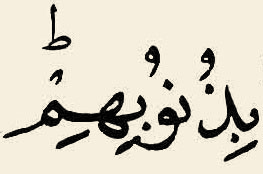 بِذُنُوبِهِمْ ؕ